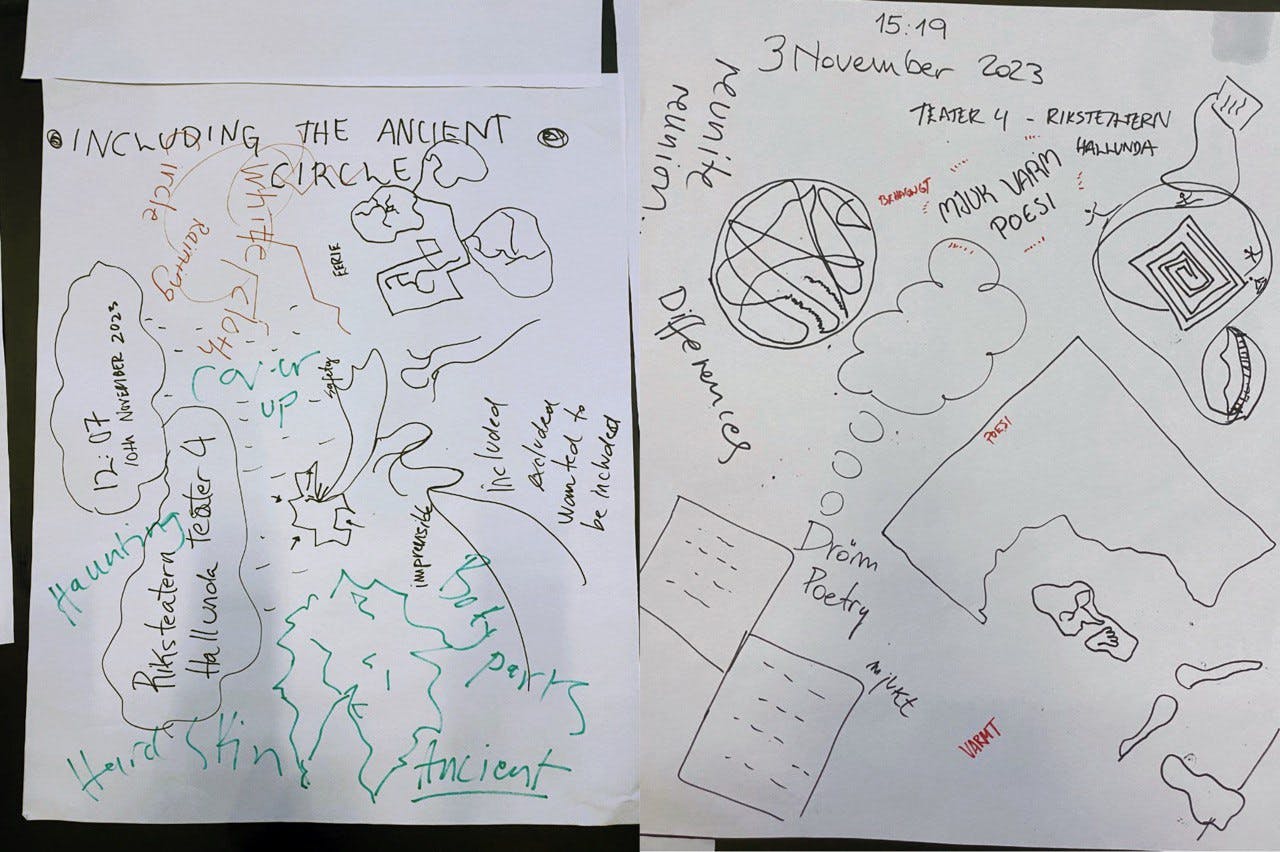 INCLUDING THE ANCIENT
CIRCLE?
White
circle
Raining
cloth
EERIE
12:07
10th NOVEMBER 2023
Cover
up
safety
Riksteatern
Hallunda teater 4
Included
Exluded
Wanted to
be included
Haunting
Body
parts
Hard Skin
Ancient
15:19
3 November 2023
TEATER 4 - RIKSTEATERN
HALLUNDA
reunite
reunion
Differences
BEHAGLIGT
MJUK VARM
POESI
POESI
Dröm
Poetry
mjukt
VARMT